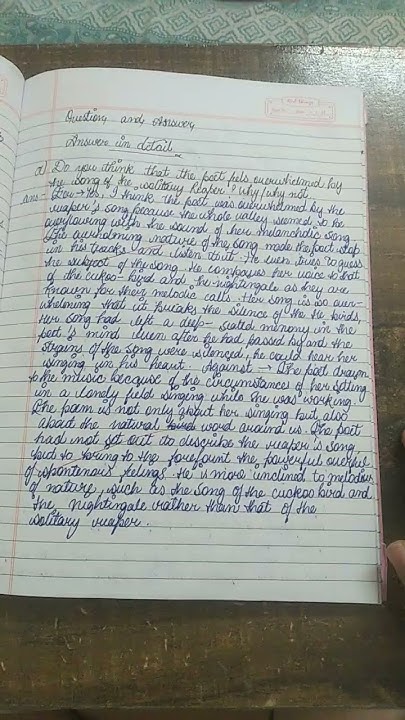 Question and Answer
Answer in detail
a) Do you think that the poet fels overwhelmed by
the song of the solitary Reaper? why/why not.
ans:- For→ Yes, I think the poet was overwhelmed by the
reaper's song because the whole valley seemed to be
overflowing with the sound of her melancholic song.
The overwhelming nature of the song made the poet stop
in his tracks and listen to it. He even tries to guess
the subject of the song. He compares her voice to that
of the cuckoo-bird and the nightingale as they are
known for their melodic calls. Her song is so over-
whelming that it breaks the silence of the He birds,
Her song had left a deep-seated memory in the
poet's mind even after he had passed by and the
strains of the song were silenced, he could hear her
singing in his heart. Against → The poet drawn
to the music because of the circumstances of her setting
in a lonely field singing while she was working.
The poem is not only about her singing but also
about the natural word around us. The poet
had not set out to describe the reaper's song
but to bring to the forefront the powerful
of spontenous felings. He is more inclined to melodies
of nature, such as the song of the cuckoo bird and
the nightingale rather than that of the
solitary reaper.